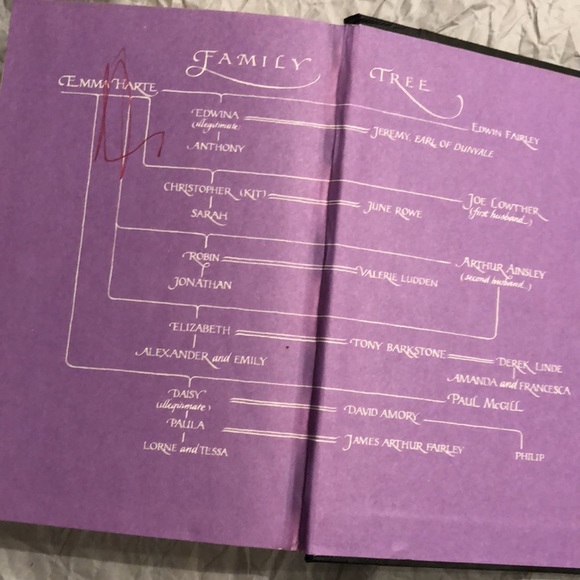 FAMILY TREE
EMMA HARTE
EDWIN FAIRLEY
EDWINA
(illegitimate)
JEREMY, EARL OF DUNVALE
ANTHONY
CHRISTOPHER (KIT)
JUNE ROWE
JOE LOWTHER
(first husband)
SARAH
ROBIN
VALERIE LUDDEN
ARTHUR AINSLEY
(second husband)
JONATHAN
ELIZABETH
TONY BARKSTONE
DEREK LINDE
ALEXANDER and EMILY
AMANDA and FRANCESCA
DAISY
(illegitimate)
DAVID AMORY
PAUL McGILL
PAULA
JAMES ARTHUR FAIRLEY
PHILIP
LORNE and TESSA